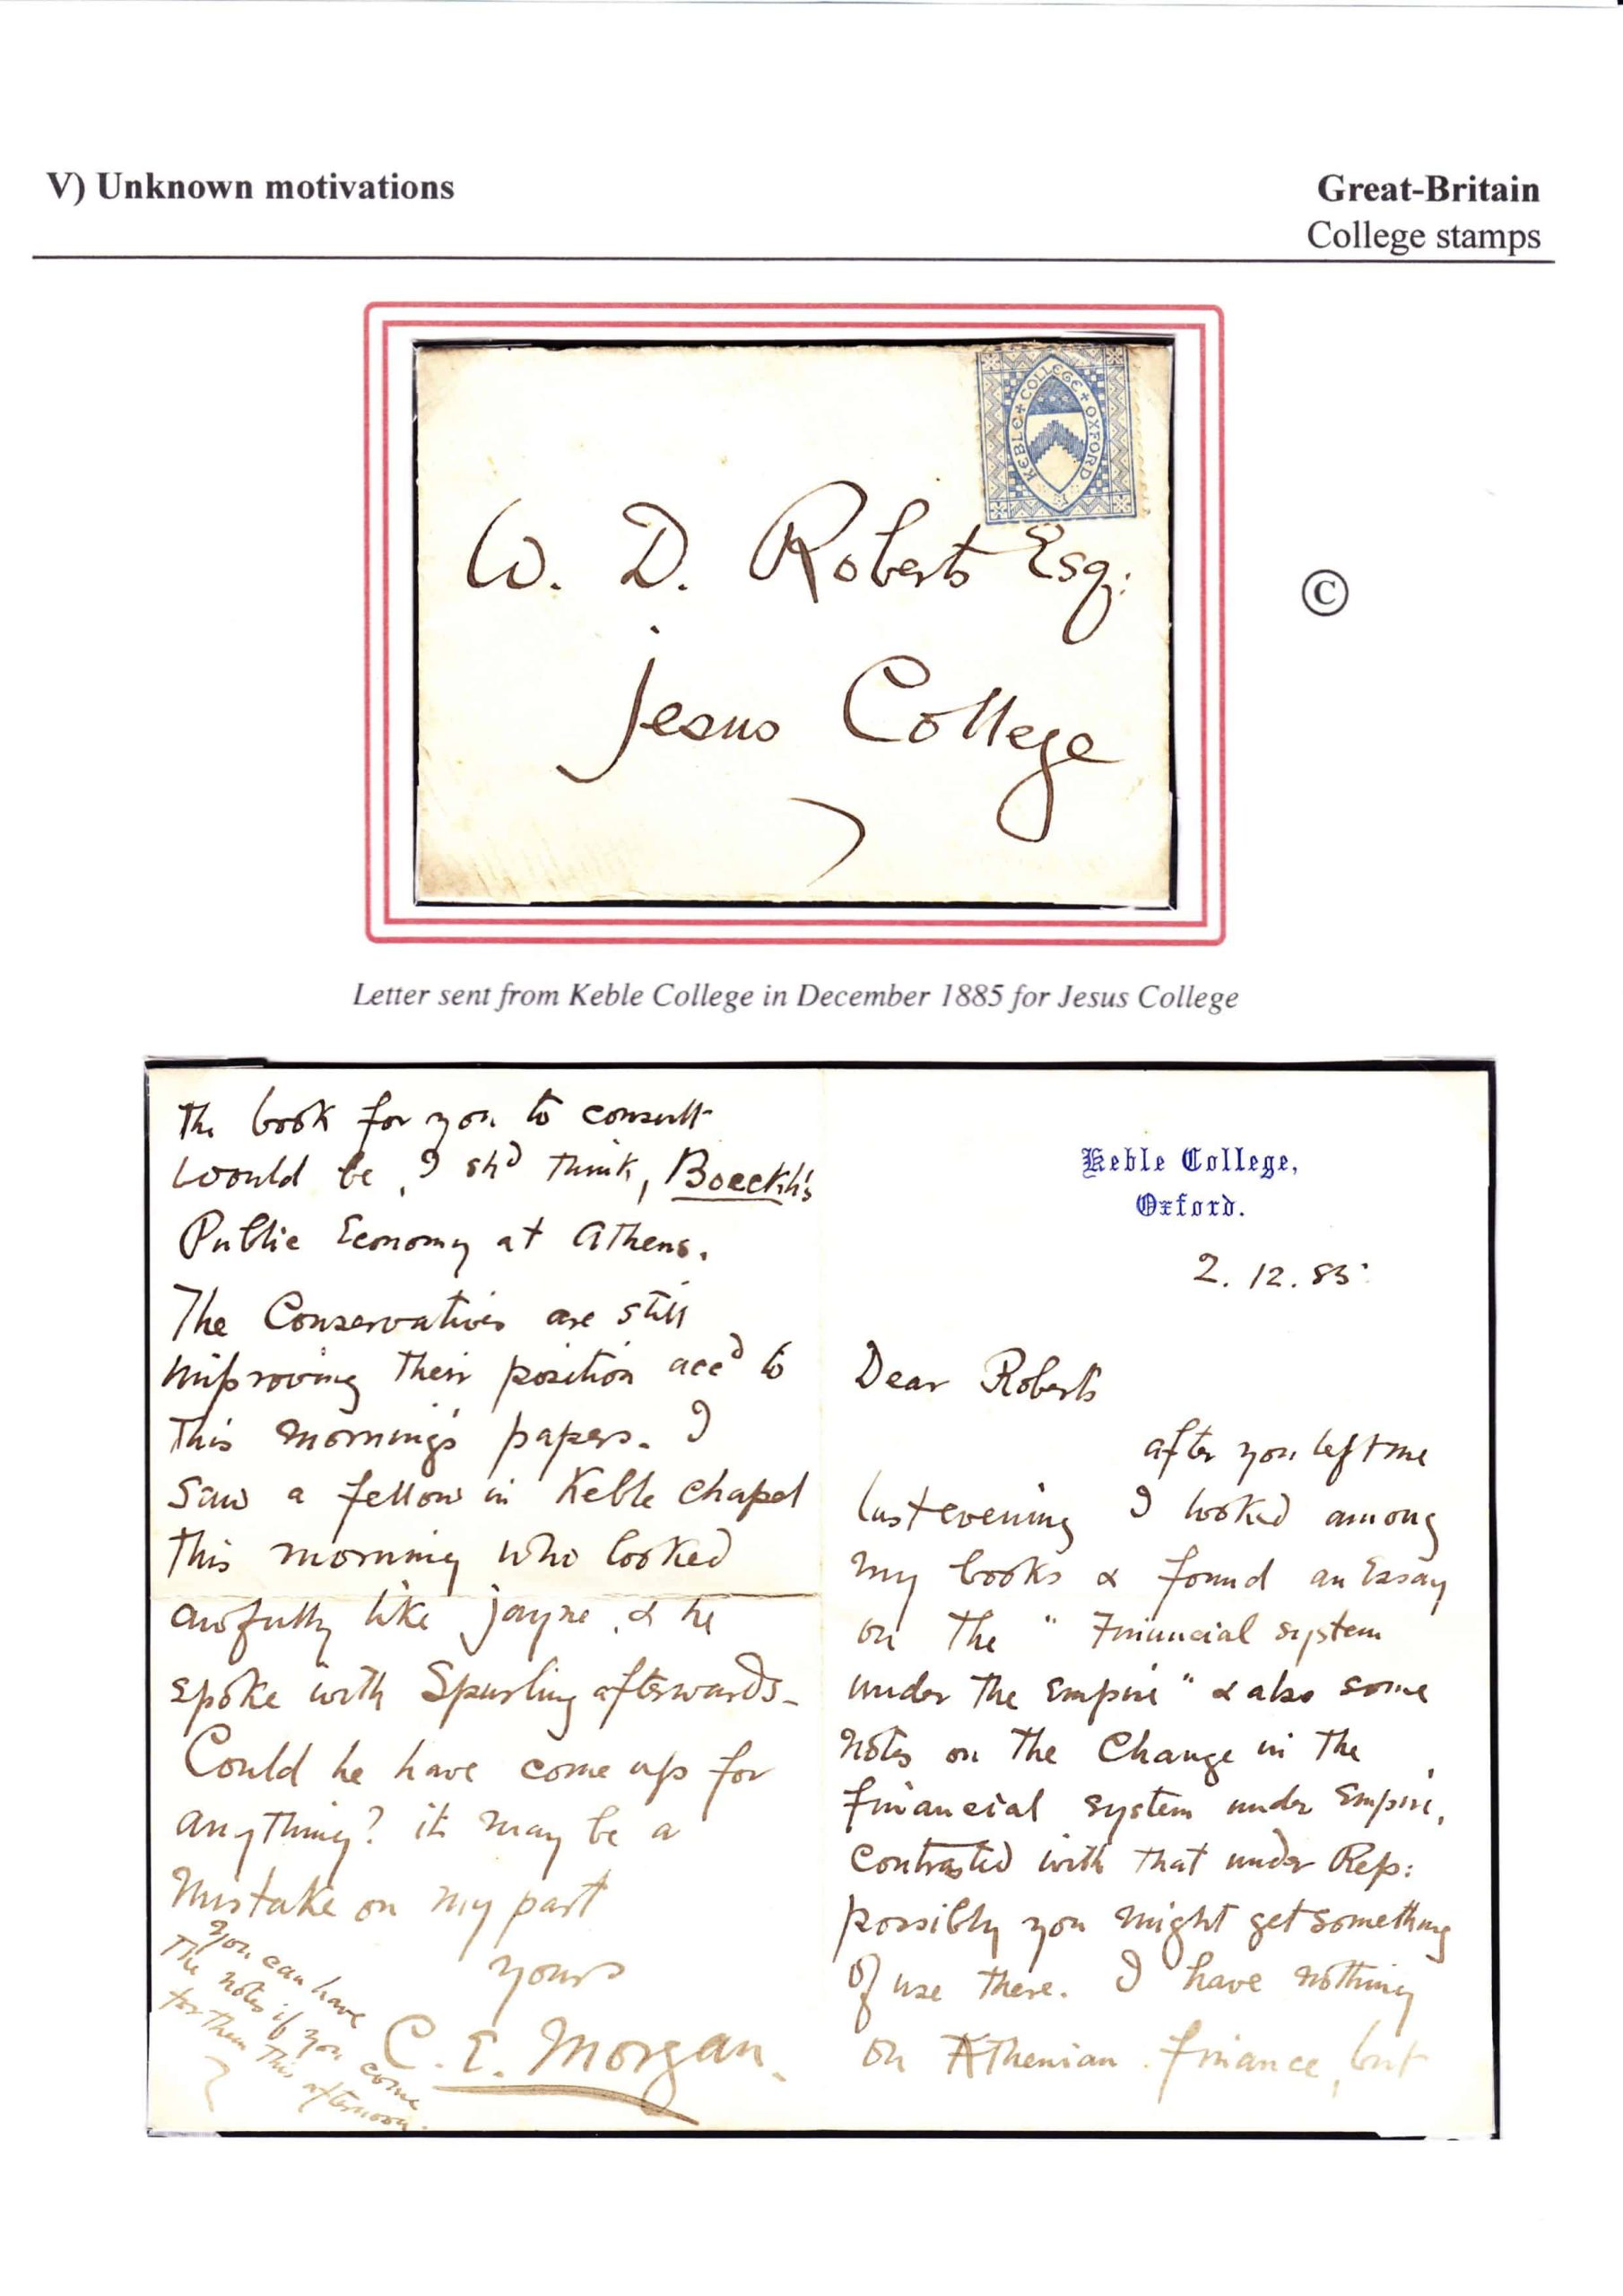 V) Unknown motivations
Great-Britain
College stamps
KEBLE COLLEGE OXFORD
W. D. Roberts Esq:
Jesus College
©
Letter sent from Keble College in December 1885 for Jesus College
Keble College,
Oxford.
2. 12. 85.
Dear Roberts
after you left me
last evening I looked among
my books & found an Essay
on the "Financial system
under the Empire" & also some
notes on the Change in the
financial system under Empire,
contrasted with that under Rep:
possibly you might get something
of use there. I have nothing
on Athenian finance, but
the book for you to consult
would be, I shd think, Boeckh's
Public Economy at Athens.
The Conservatives are still
improving their position accd to
this morning's papers. I
saw a fellow in Keble chapel
this morning who looked
awfully like Jayne, & he
spoke with Spurling afterwards-
Could he have come up for
anything? it may be a
mistake on my part
yours
C. E. Morgan.
you can have
the notes if you come
for them this afternoon.